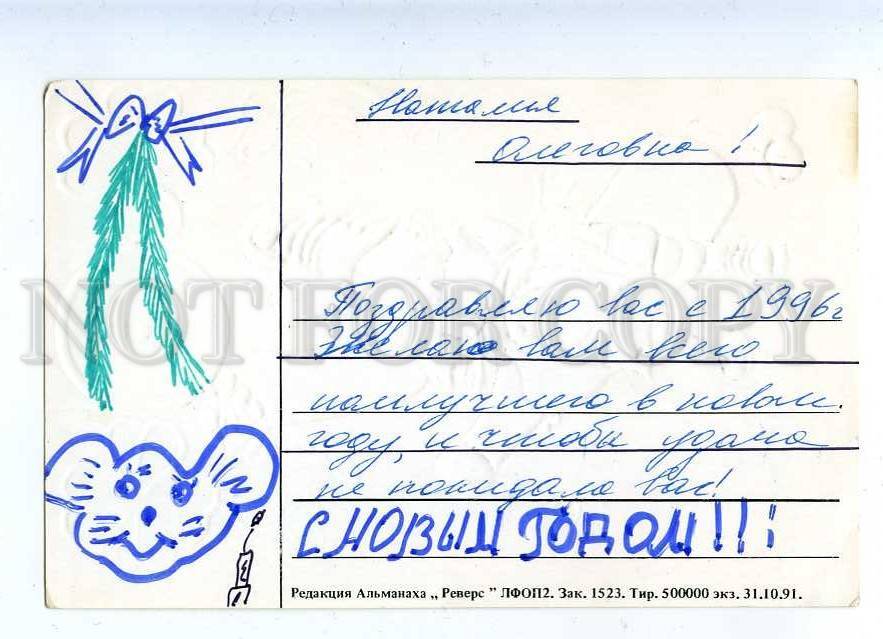 Наталия
Олеговна!
Поздравляю вас с 1996г
Желаю вам всего
наилучшего в новом
году, и чтобы удача
не покидала вас!
С НОВЫМ ГОДОМ!!!
Редакция Альманаха „ Реверс " ЛФОП2. Зак. 1523. Тир. 500000 экз. 31.10.91.
NOT FOR COPY